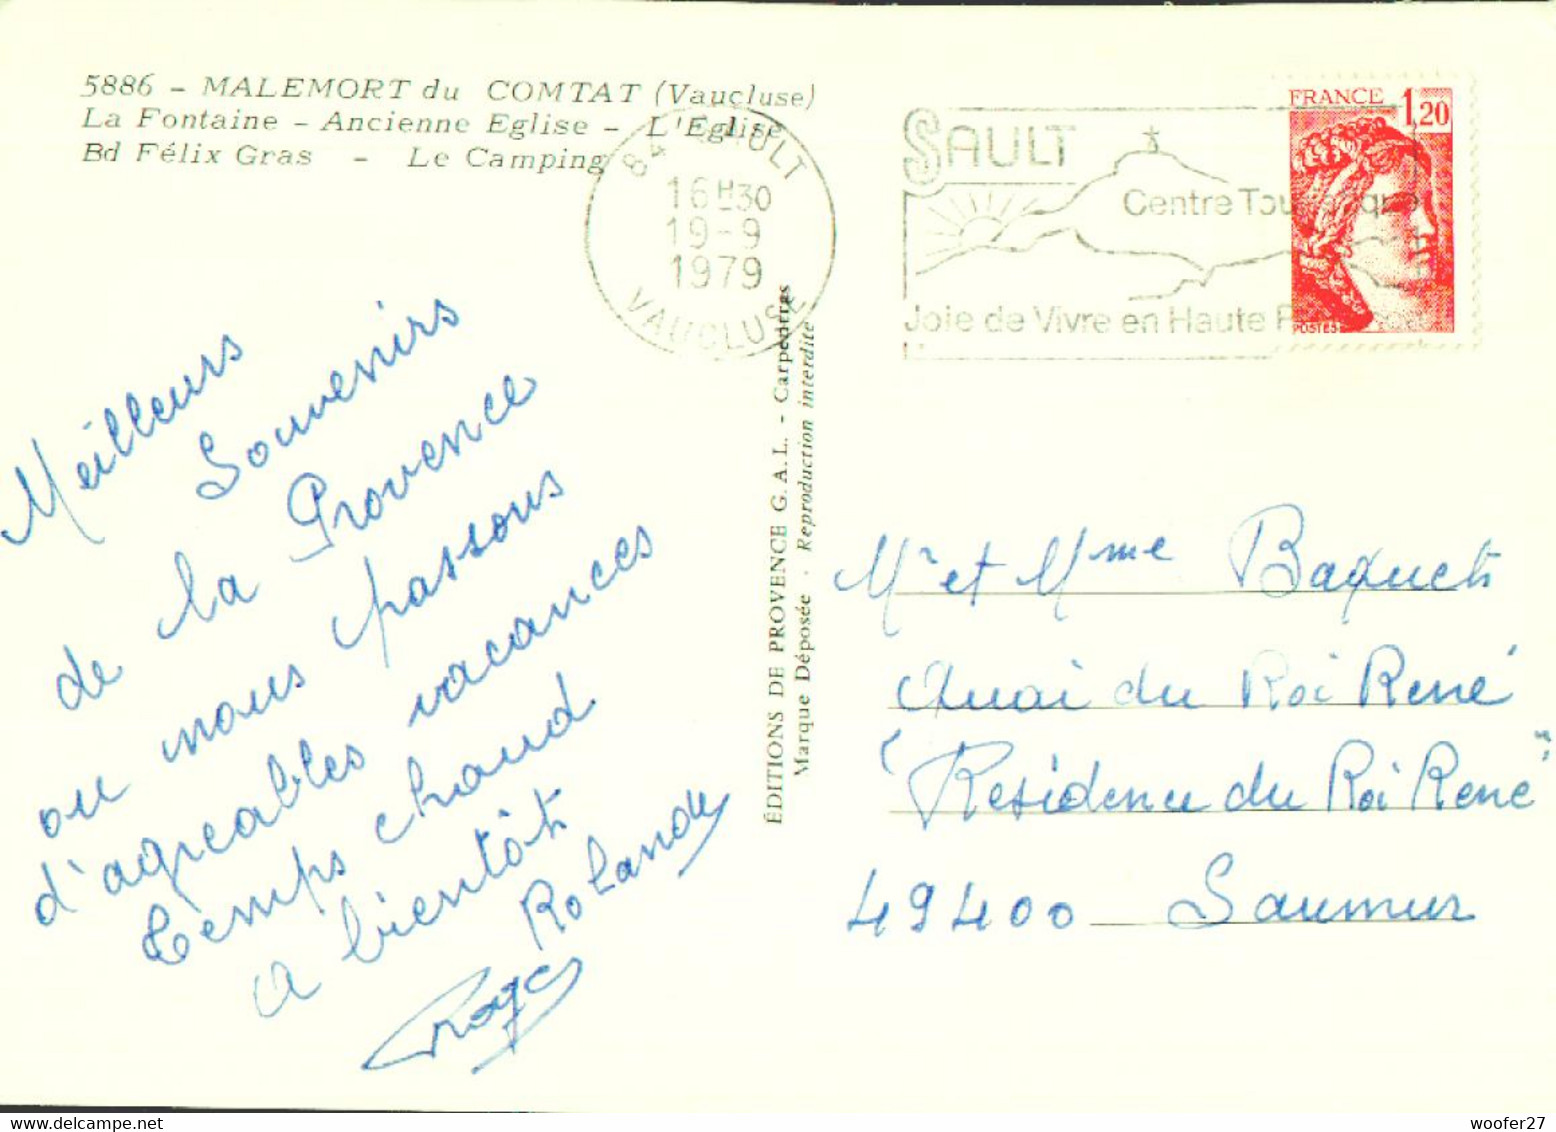 5886 - MALEMORT du COMTAT (Vaucluse)
La Fontaine - Ancienne Eglise - L'Eglise
Bd Félix Gras - Le Camping
84 SAULT
16H30
19-9
1979
VAUCLUSE
SAULT
Centre Touristique
Joie de Vivre en Haute Provence
FRANCE 1,20
POSTES
Meilleurs
Souvenirs
de la Provence
ou nous passons
d'agreables vacances
temps chaud
a bientôt
Rolande
Roger
ÉDITIONS DE PROVENCE G.A.L. - Carpentras
Marque Déposée - Reproduction interdite
Mr et Mme
Quai du Roi René
"Residence du Roi René"
49400 Saumur
woofer27